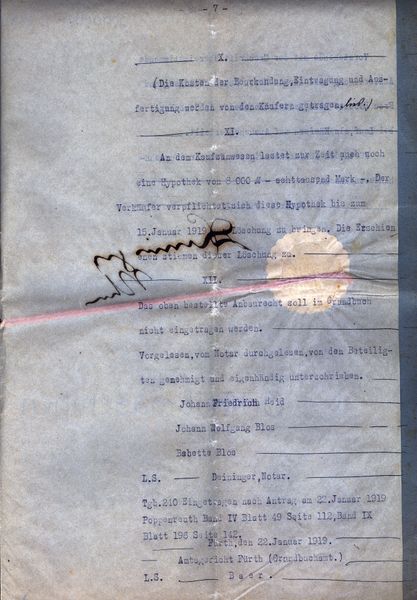 - 7 -
X.
(Die Kosten der Beurkundung,Eintragung und Aus-
fertigung werden von den Käufern getragen,
XI.
An dem Kaufsanwesen lastet zur Zeit auch noch
eine Hypothek von 8 000 M - achttausend Mark -. Der
Verkäufer verpflichtet sich diese Hypothek bis zum
15.Januar 1919 Löschung zu bringen. Die Erschien
enen stimmen dieser Löschung zu.
XII.
Das oben bestellte Anbaurecht soll im Grundbuch
nicht eingetragen werden.
Vorgelesen,vom Notar durchgelesen,von den Beteilig-
ten genehmigt und eigenhändig unterschrieben.
Johann Friedrich Heid
Johann Wolfgang Blos
Babette Blos
L.S. Deininger,Notar.
Tgb.240 Eingetragen nach Antrag am 22.Januar 1919
Poppenreuth Band IV Blatt 49 Seite 112,Band IX
Blatt 196 Seite 142.
Fürth,den 22.Januar 1919.
Amtsgericht Fürth (Grundbuchamt.)
L.S. Baer.